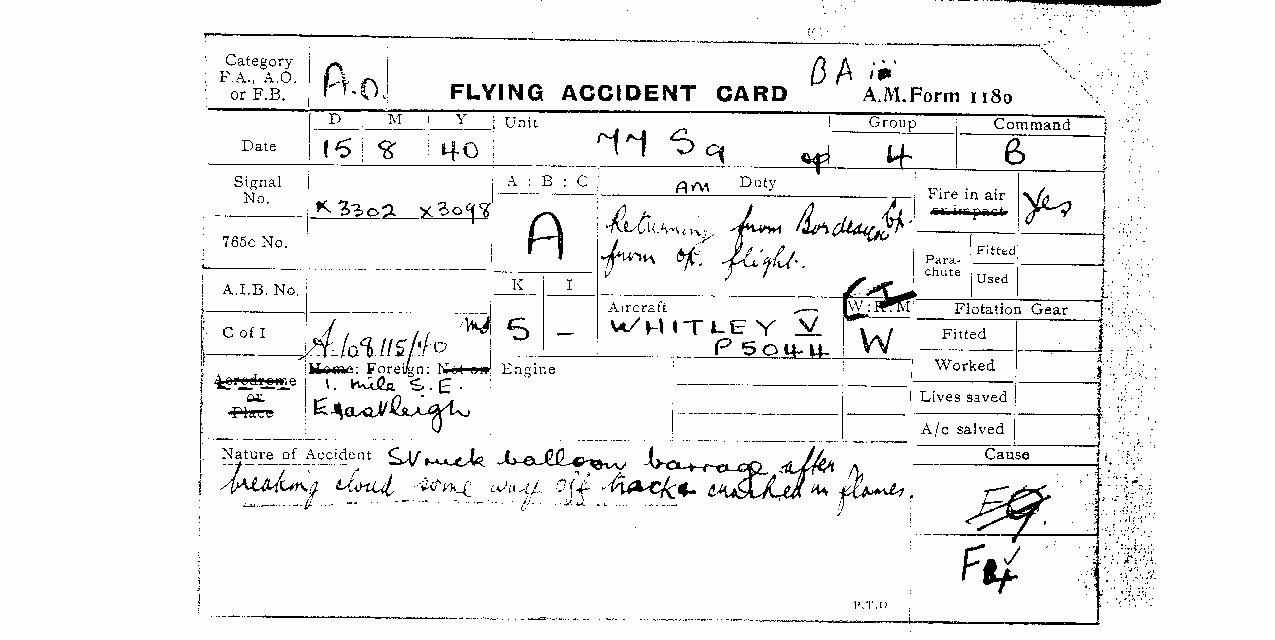 Category
F.A., A.O.
or F.B.
A.O.
FLYING ACCIDENT CARD
BA iii
A.M.Form 1180
Date
D M Y
15 8 40
Unit
77 Sq
op
Group
4
Command
B
Signal
No.
X3302 X3098
A : B : C
A
AM Duty
Returning from Bordeaux
from op. flight.
Fire in air
or impact
Yes
765c No.
Para-
chute
Fitted
Used
A.I.B. No.
K I
5 –
Aircraft
WHITLEY V
P5044
W:R:M
W
Flotation Gear
Fitted
Worked
Lives saved
A/c salved
C of I
A108115/40
Home: Foreign: Not on
Aerodrome
or
Place
1. mile S.E.
Eastleigh
Engine
Nature of Accident Struck balloon barrage after
breaking cloud some way off track crashed in flames.
Cause
P.T.O